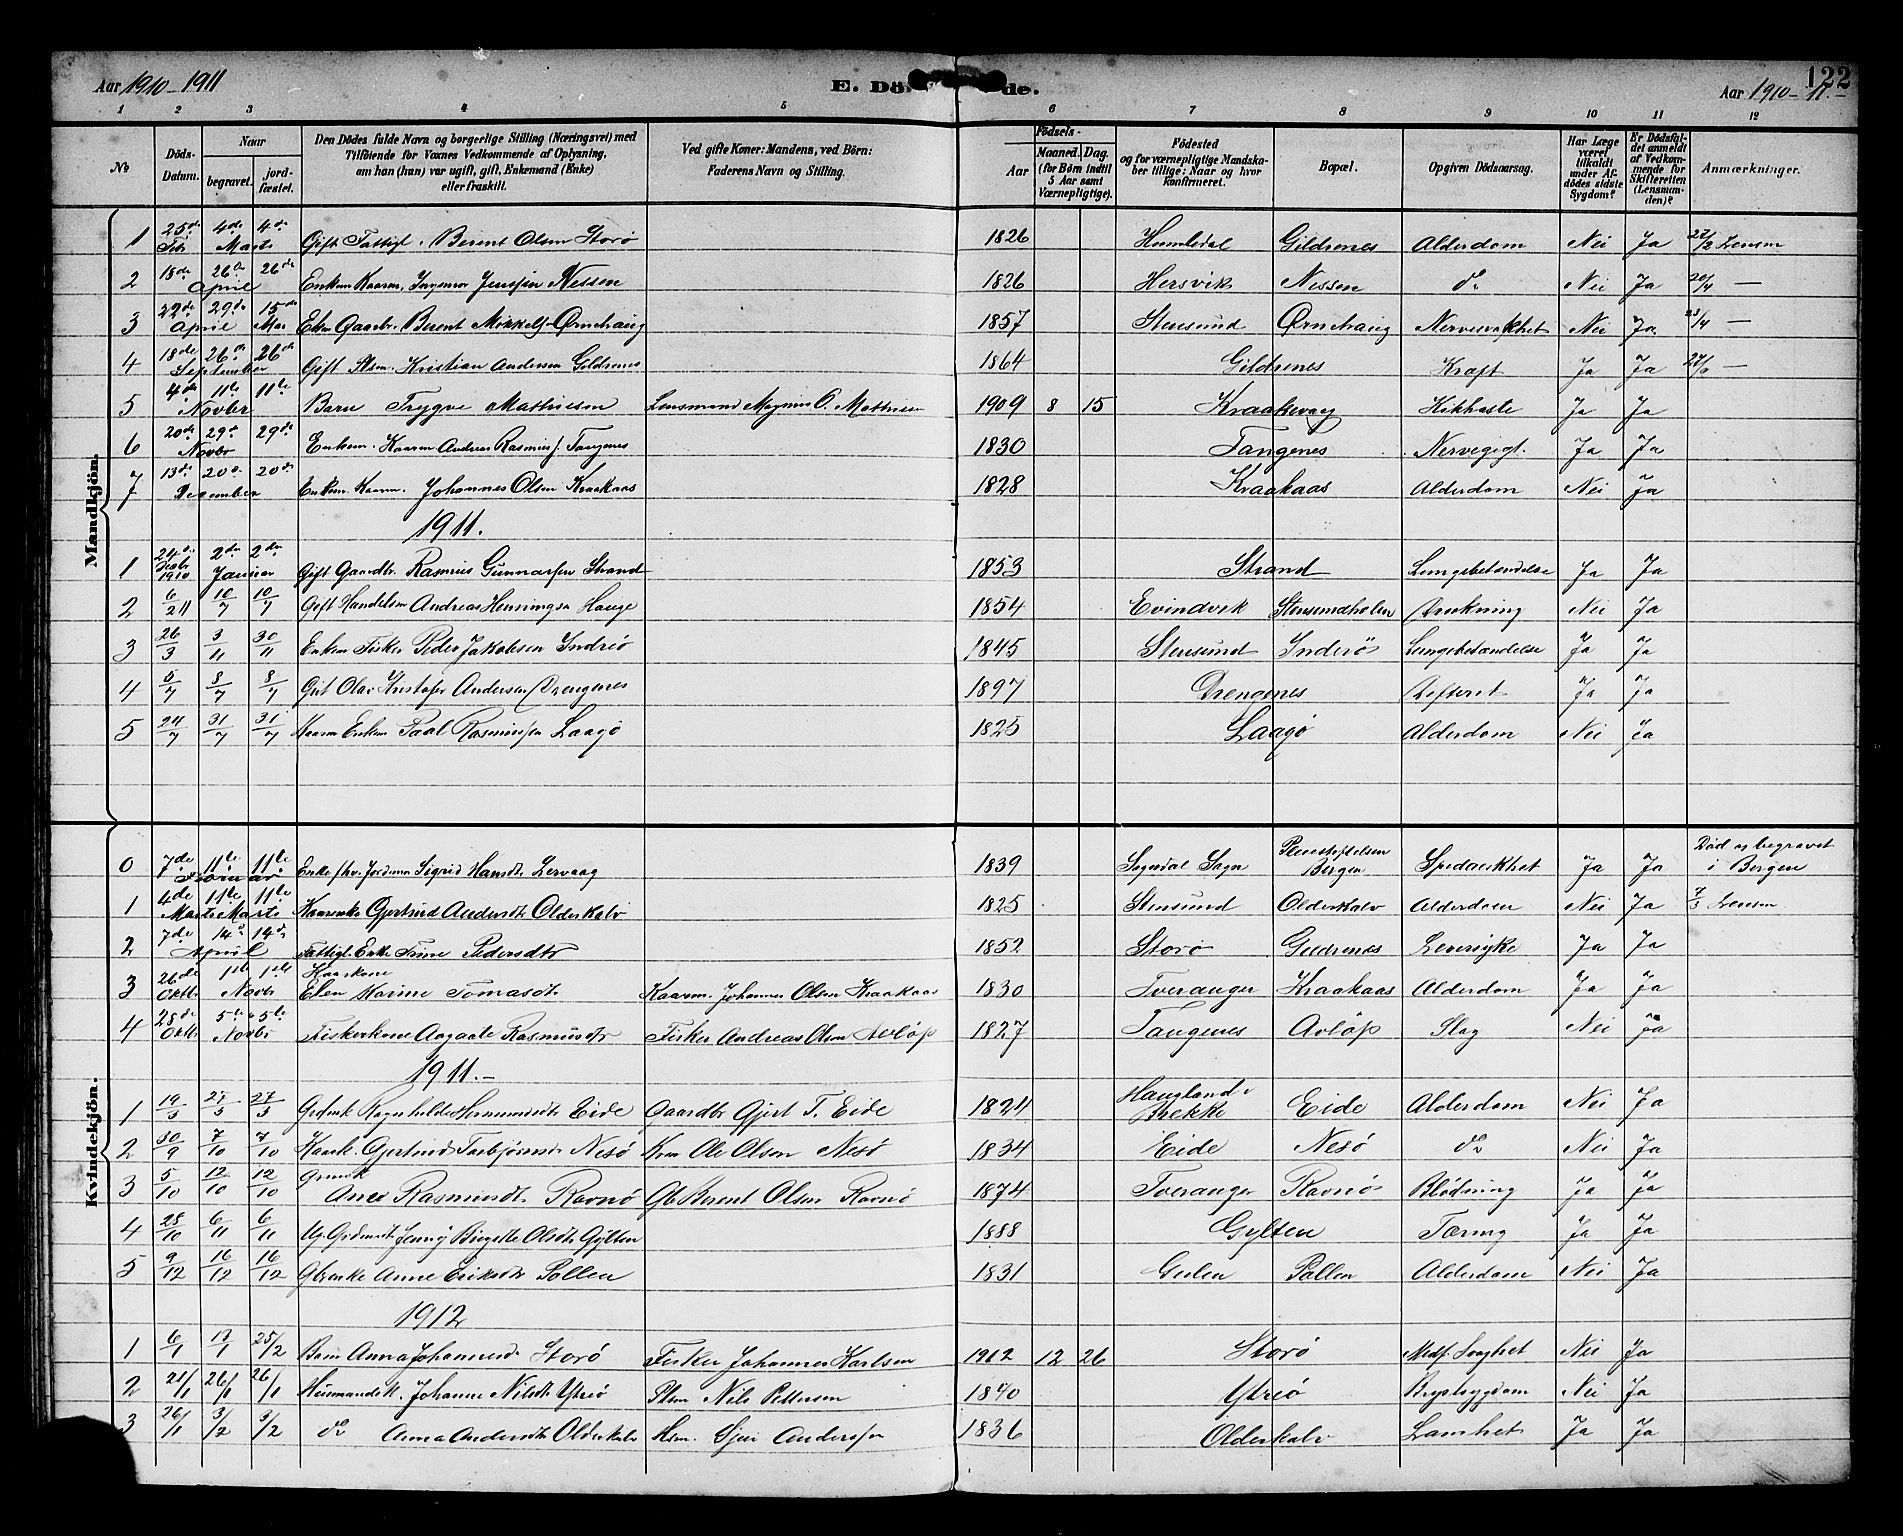 Aar 1910-1911 E. Dö de. Aar 1910-11.- 122
1 2 3 4 5 6 7 8 9 10 11 12
No Döds-Datum. Naar begravet. jord-fæstet. Den Dödes fulde Navn og borgerlige Stilling (Næringsvei) med Tilföiende for Voxnes Vedkommende af Oplysning, om han (hun) var ugift, gift, Enkemand (Enke) eller fraskilt. Ved gifte Koner: Mandens, ved Börn: Faderens Navn og Stilling. Födsels- Aar Maaned. Dag. (for Börn indtil 5 Aar samt Værnepligtige). Födested og for værnepligtige Mandskaber tillige: Naar og hvor konfirmeret. Bopæl. Opgiven Dödsaarsag. Har Læge været tilkaldt under Afdödes sidste Sygdom? Er Dödsfaldet anmeldt af Vedkommende for Skifteretten (Lensmanden)? Anmærkninger.
Mandkjön.
1 25de Feb 4de 4de Marts Gift Fattigl. Berent Olsen Storø 1826 Humledal Gildrenes Alderdom Nei Ja 27/2 Lensm
2 18de 26de 26de April Enkem Kaarm. Ingemor Jenssen Nessen 1826 Hersvik Nessen do Nei Ja 20/4 —
3 22de April 29de 15de Mai Ekm Gaardbr. Berent Mikkels. Ørnehaug 1857 Stensund Ørnehaug Nervesvakhet Nei Ja 23/4 —
4 18de 26de 26de September Gift Plsm. Kristian Andersen Gildrenes 1864 Gildrenes Kræft Ja Ja —
5 4de 11te 11te Novbr Barn Trygve Mathiesen Lensmand Magnus O. Mathiesen 1909 8 15 Kraakevaag Kikhoste Ja Ja
6 20de 29de 29de Novbr Enkem. Kaarm Andreas Rasmus. Tangenes 1830 Tangenes Nervegigt. Ja Ja
7 13de 20de 20de December Enkm. Kaarm. Johannes Olsen Kraakaas 1828 Kraakaas Alderdom Nei Ja
1911.
1 24de 1910 2den 2den Januar Gift Gaardbr. Rasmus Gunnarsen Strand 1853 Strand Lungebetændelse Ja Ja
2 10/7 10/7 Gift Handelsm Andreas Henningsen Hauge 1854 Evindvik Stensundholm Drukning Nei Ja
3 26/3 3/11 30/11 Enkem Fisker Peder Jakobsen Indreø 1845 Stensund Inderø Lungebetændelse Ja Ja
4 5/7 8/7 8/7 Gut Olav Kristofer Andersen Drengenes 1897 Drengenes Difterit Ja Ja
5 24/7 31/7 31/7 Kaarm Enkem Paal Rasmussen Laagø 1825 Laagø Alderdom Nei Ja
Kvindekjön.
0 7de 11te 11te Enke fhv. Jordmor Sigrid Hansdt. Lervaag 1839 Sogndal Sogn Pleiestiftelsen Bergen Spedalskhet Ja Ja Död og begravet i Bergen
1 4de Marts 11te 11te Marts Kaarenke Gjertrud Andersdt. Olderkalv 1825 Stensund Olderkalv Alderdom Nei Ja 7/3 Lensm
2 7de 14de 14de April Fattigl. Enke Trine Pedersdtr 1852 Storø Gildrenes Leversyke Ja Ja
3 26de Oktbr 1ste 1ste Novbr Kaarkone Elen Marine Tomasdt. Kaarm. Johannes Olsen Kraakaas 1830 Tveranger Kraakaas Alderdom Ja Ja
4 28de Oktbr 5te 5te Novbr Fiskerkone Aagaate Rasmusdtr Fisker Andreas Olsen Avløp 1827 Tangenes Avløp Slag Nei Ja
1911.-
1 19/3 27/3 27/3 Ragnhilde Hermundsdt. Eide Gaardbr Gjert T. Eide 1824 Haugland i Brekke Eide Alderdom Nei Ja
2 30/9 7/10 7/10 Kaark. Gjertrud Torbjørnsdt. Nesø Krm Ole Olsen Nesø 1834 Eide Nesø do Nei Ja
3 5/10 12/10 12/10 Grmk Ane Rasmusdt. Ravnø Gb Berent Olsen Ravnø 1874 Tveranger Ravnø Blødning Ja Ja
4 28/10 6/11 6/11 Ug. Jenny Birgitte Olsdt. Gylten 1888 Gylten Tæring Ja Ja
5 9/12 16/12 16/12 Gbrenke Anne Eriksdtr Pollen 1831 Gulen Pollen Alderdom Nei Ja
1912
1 6/1 13/1 25/2 Barn Anna Johannesd. Storø Fisker Johannes Karlsen 1912 12 26 Storø Medf. Svaghet Nei Ja
2 21/1 26/1 26/1 Husmandsk. Johanne Nilsdt. Ytreø Plsm Nils Pettersen 1840 Ytreø Brystsygdom Nei Ja
3 26/1 3/2 3/2 do Anna Andersdt. Olderkalv Hsm. Gjert Andersen 1836 Olderkalv Lamhet Ja Ja